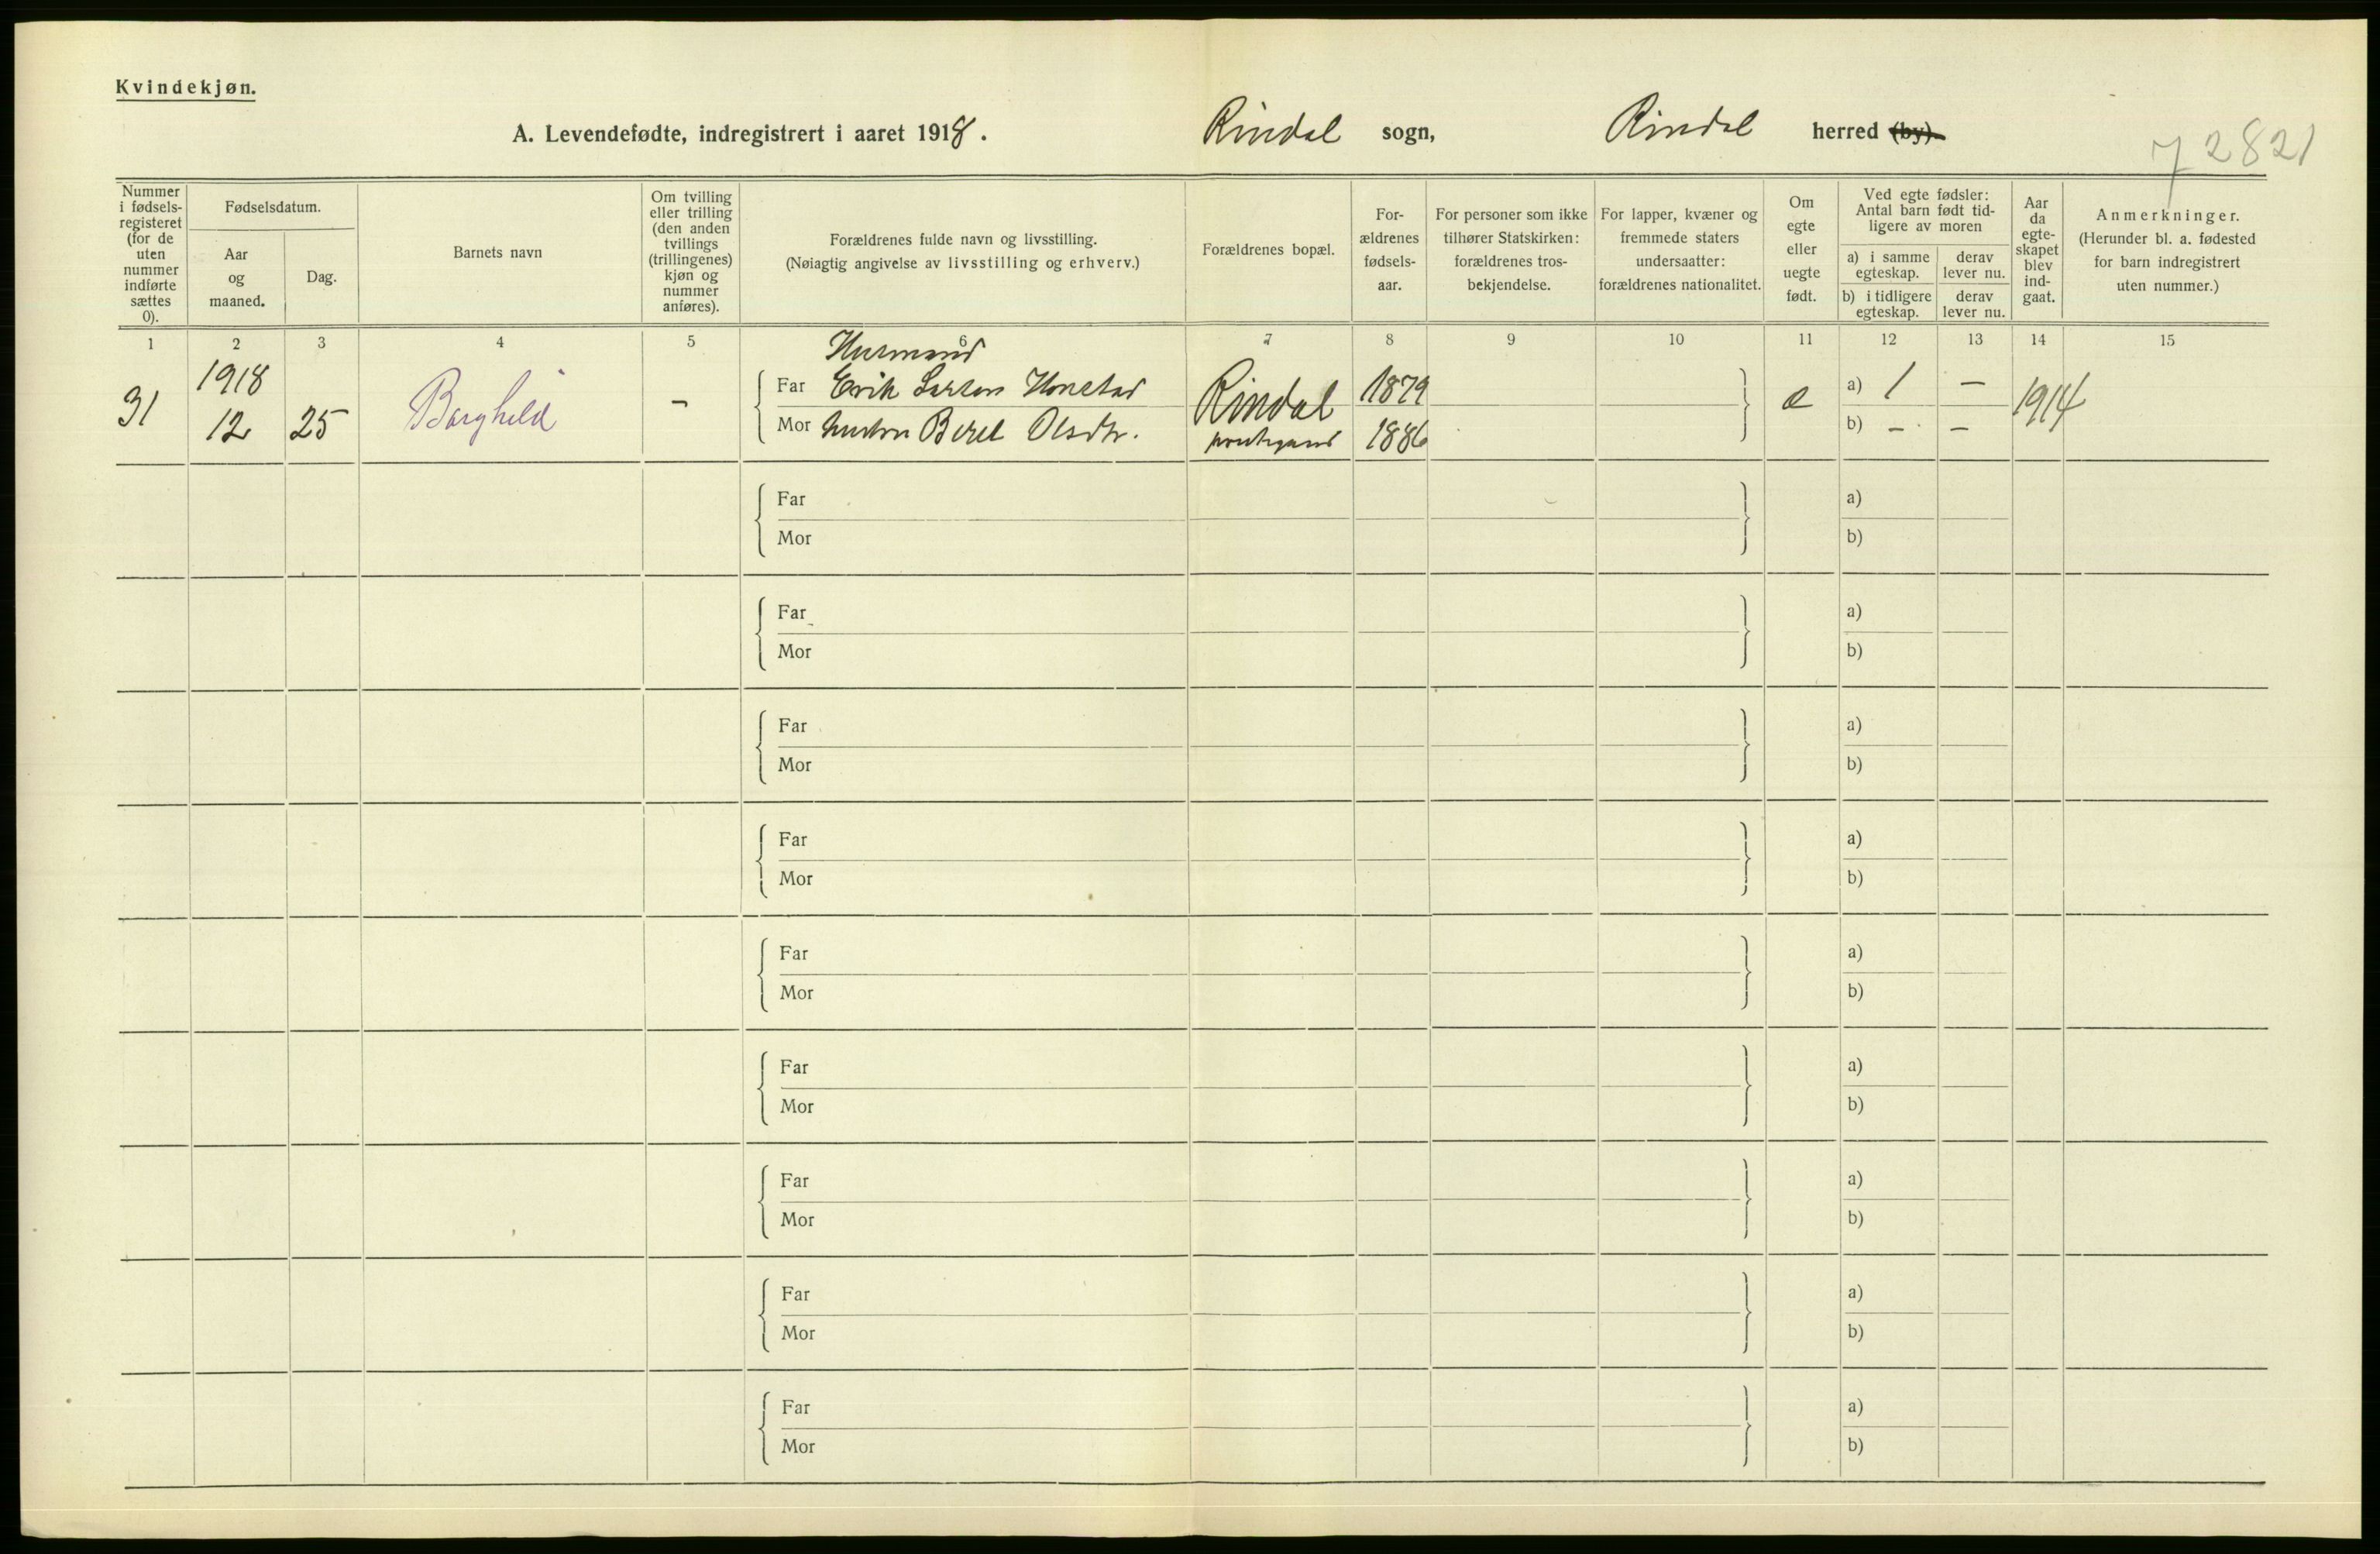 Kvindekjøn.
A. Levendefødte, indregistrert i aaret 1918. Rindal sogn, Rindal herred (by).
72821
Nummer i fødselsregisteret (for de uten nummer indførte sættes 0).
Fødselsdatum.
Aar og maaned.
Dag.
Barnets navn
Om tvilling eller trilling (den anden tvillings (trillingenes) kjøn og nummer anføres).
Forældrenes fulde navn og livsstilling.
(Nøiagtig angivelse av livsstilling og erhverv.)
Forældrenes bopæl.
For-
ældrenes
fødsels-
aar.
For personer som ikke
tilhører Statskirken:
forældrenes tros-
bekjendelse.
For lapper, kvæner og
fremmede staters
undersaatter:
forældrenes nationalitet.
Om
egte
eller
uegte
født.
Ved egte fødsler:
Antal barn født tid-
ligere av moren
a) i samme egteskap.
derav lever nu.
b) i tidligere egteskap.
derav lever nu.
Aar
da
egte-
skapet
blev
ind-
gaat.
Anmerkninger.
(Herunder bl. a. fødested
for barn indregistrert
uten nummer.)
1 2 3 4 5 6 7 8 9 10 11 12 13 14 15
Husmand
31 1918 12 25 Borghild -
Far Erik Larsen
Mor hustru Beret Olsdtr.
Rindal
1879
1886
e
a) 1 —
b) - —
1914
Far
Mor
a)
b)
Far
Mor
a)
b)
Far
Mor
a)
b)
Far
Mor
a)
b)
Far
Mor
a)
b)
Far
Mor
a)
b)
Far
Mor
a)
b)
Far
Mor
a)
b)
Far
Mor
a)
b)